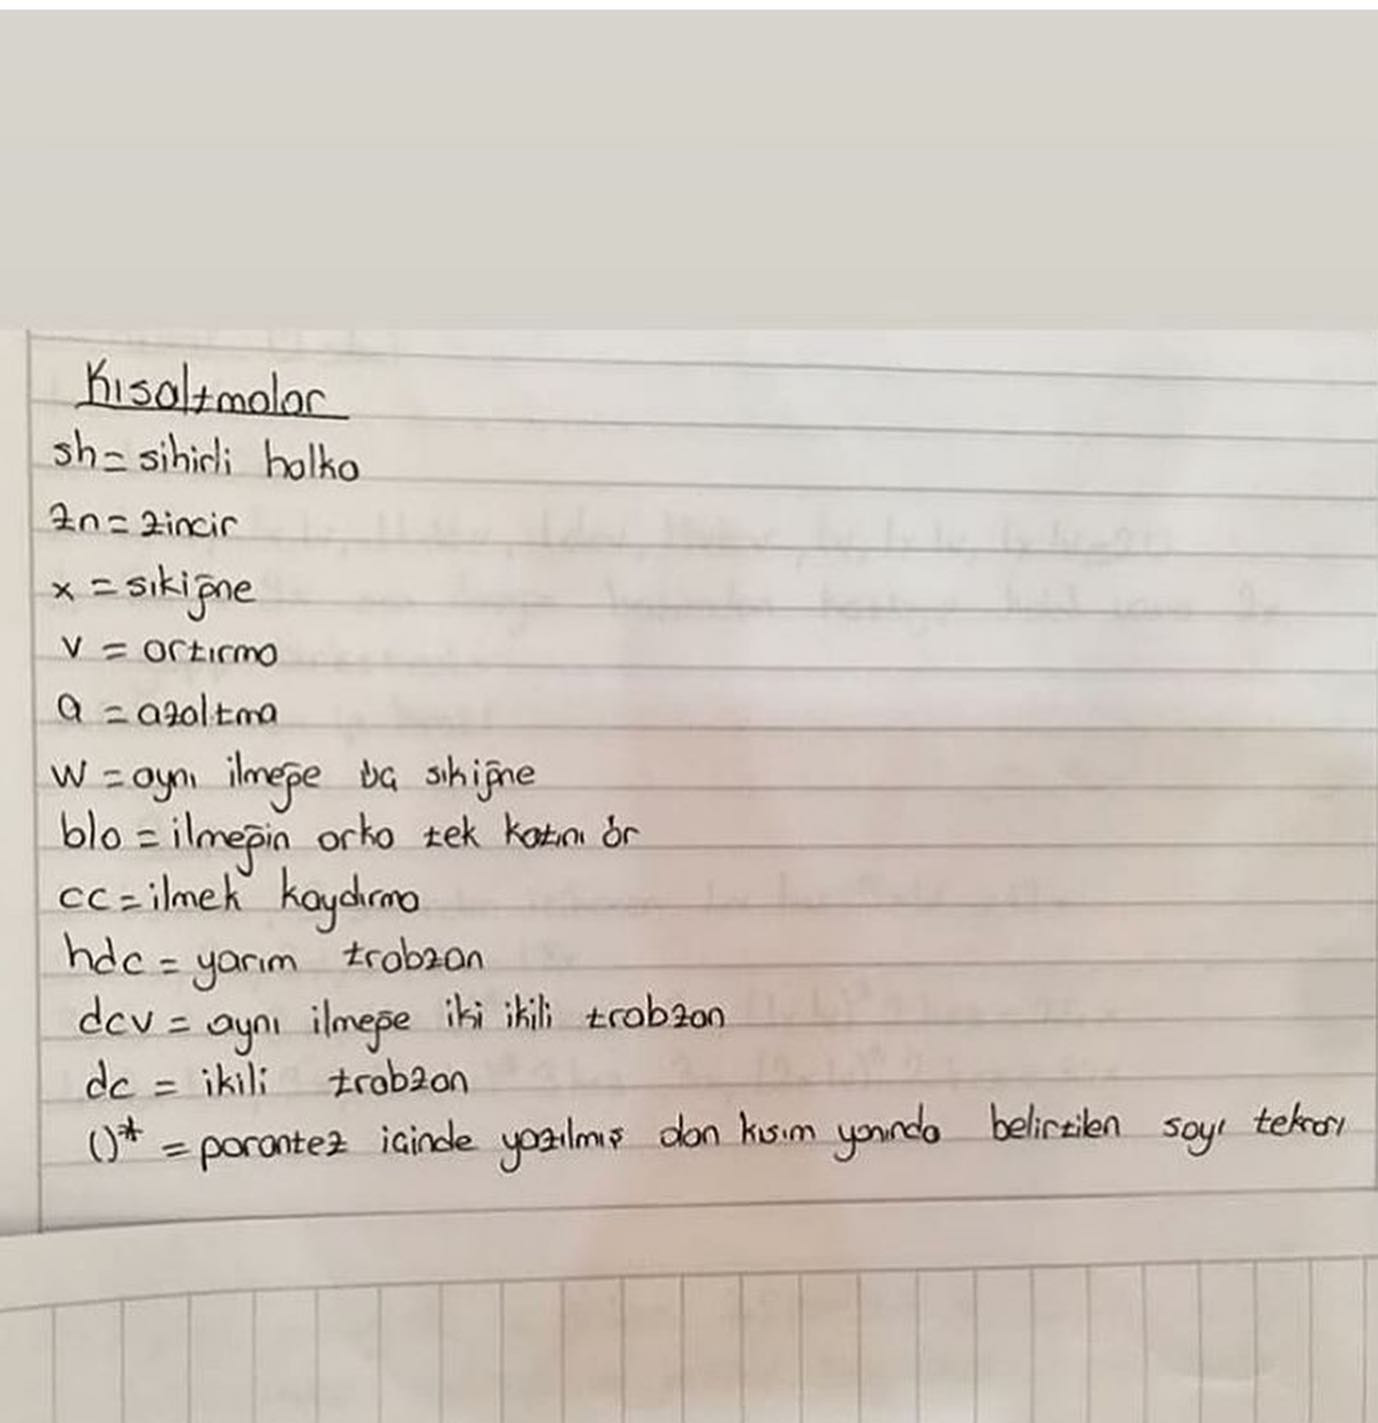 Kısaltmalar
sh = sihirli halka
zn = zincir
x = sıkiğne
v = artırma
a = azaltma
w = aynı ilmeğe üç sıkiğne
blo = ilmeğin arka tek katını ör
cc = ilmek kaydırma
hdc = yarım trabzan
dcv = aynı ilmeğe iki ikili trabzan
dc = ikili trabzan
()* = parantez içinde yazılmış olan kısım yanında belirtilen sayı tekrarı